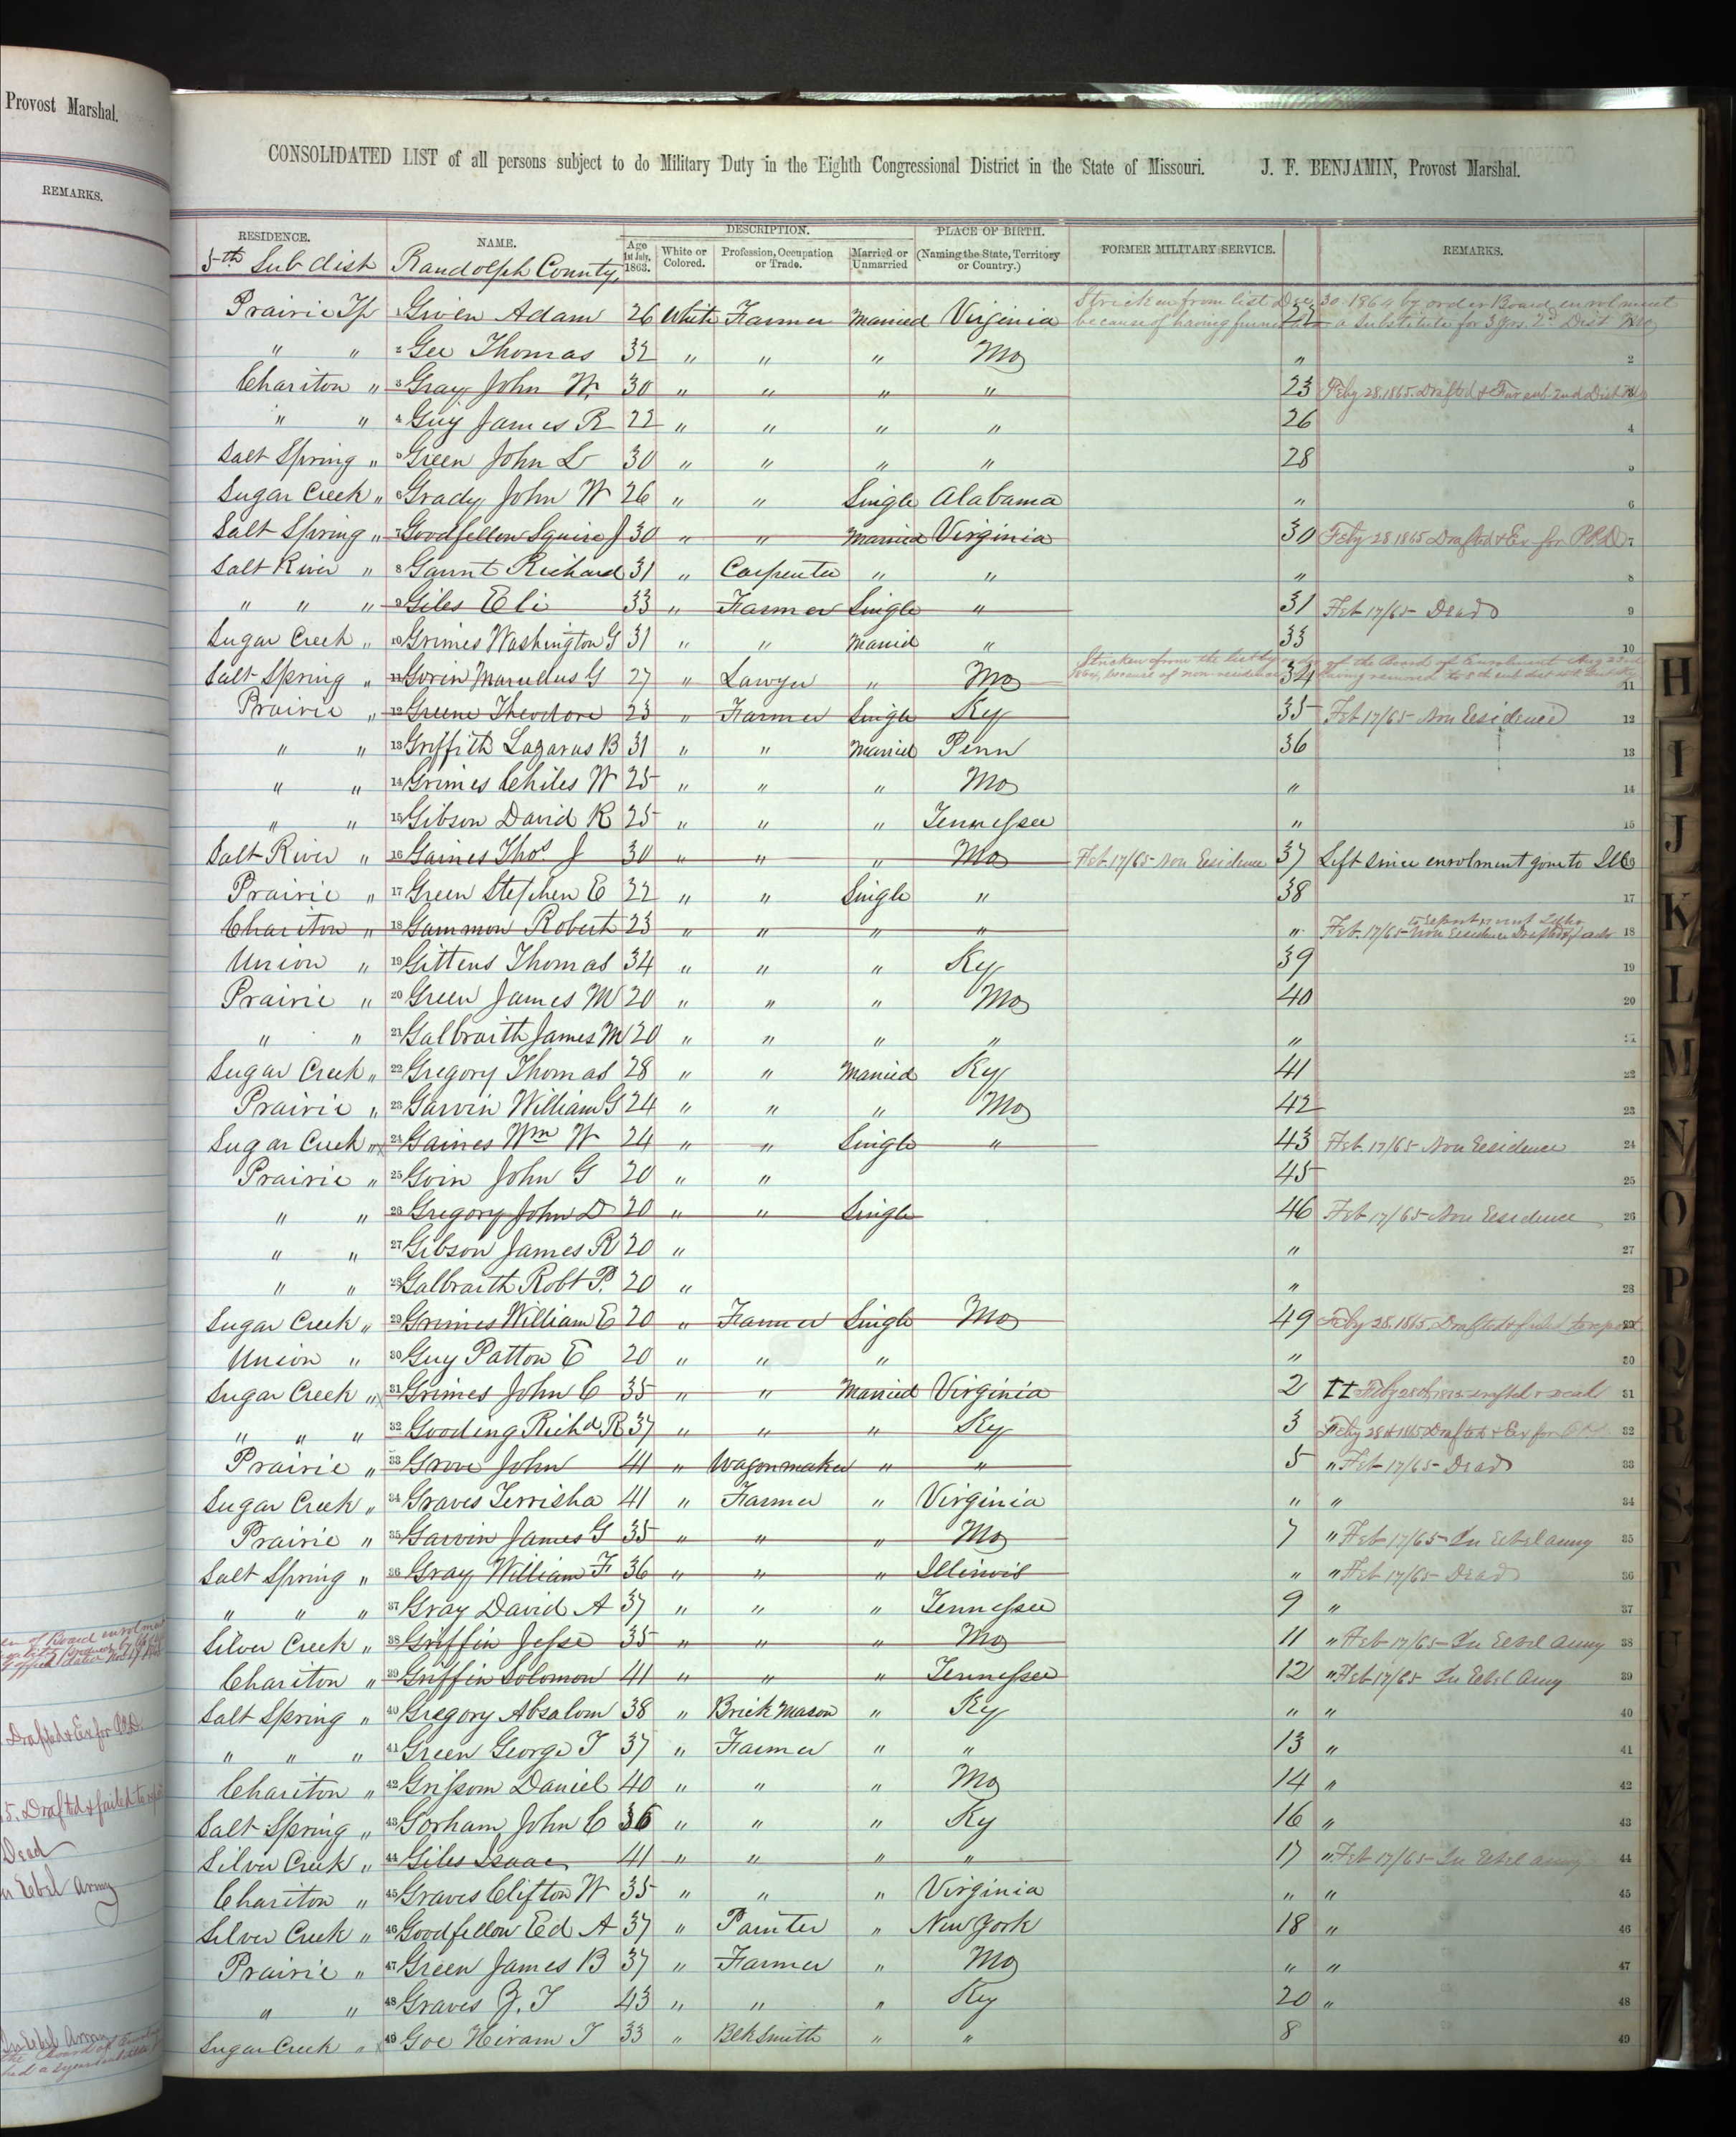 Provost Marshal.
REMARKS.
CONSOLIDATED LIST of all persons subject to do Military Duty in the Eighth Congressional District in the State of Missouri. J. F. BENJAMIN, Provost Marshal.
RESIDENCE. NAME. DESCRIPTION. PLACE OF BIRTH. FORMER MILITARY SERVICE. REMARKS.
Age 1st July, 1863. White or Colored. Profession, Occupation or Trade. Married or Unmarried (Naming the State, Territory or Country.)
5th Sub dist Randolph County,
Stricken from list Dec 30 1864 by order Board enrolment
Prairie Tp 1 Given Adam 26 White Farmer Married Virginia because of having furnished a substitute for 3 yrs 2d Dist Mo
" " 2 Gee Thomas 32 " " " Mo " 2
Chariton " 3 Gray John W 30 " " " " 23 Feby 28.1865. Drafted & Fur sub 2nd Dist Mo
" " 4 Guy James R 22 " " " " 26 4
Salt Spring " 5 Green John L 30 " " " " 28 5
Sugar Creek " 6 Grady John W 26 " " Single Alabama " 6
Salt Spring " 7 Goodfellow Squire J 30 " " Married Virginia 30 Feby 28 1865 Drafted & Ex for P.P.D 7
Salt River " 8 Garnt Richard 31 " Carpenter " " " 8
" " " 9 Giles Eli 33 " Farmer Single " 31 Feb 17/65 - Dead 9
Sugar Creek " 10 Grimes Washington G 31 " " Married " 33 10
Stricken from the list by order of the Board of Enrolment Aug 22nd
Salt Spring " 11 Gorin Marcellus G 27 " Lawyer " Mo 1864, because of non-residence 34 having removed to 8th sub dist 11
Prairie " 12 Greene Theodore 23 " Farmer Single Ky 35 Feb 17/65 - Non Residence 12
" " 13 Griffith Lazarus B 31 " " Married Penn 36 13
" " 14 Grimes Chiles W 25 " " " Mo " 14
" " 15 Gibson David R 25 " " " Tennessee " 15
Salt River " 16 Gaines Thos J 30 " " " Mo Feb 17/65 - Non Residence 37 Left since enrolment gone to Ills
Prairie " 17 Green Stephen E 22 " " Single " 38 17
Chariton " 18 Gammon Robert 23 " " " " " Feb. 17/65 - Non Residence Drafted 18
Union " 19 Gittens Thomas 34 " " " Ky 39 19
Prairie " 20 Green James M 20 " " " Mo 40 20
" " 21 Galbraith James M 20 " " " " " 21
Sugar Creek " 22 Gregory Thomas 28 " " Married Ky 41 22
Prairie " 23 Garvin William G 24 " " " Mo 42 23
Sugar Creek " 24 Gaines Wm W 24 " " Single " 43 Feb. 17/65 - Non Residence 24
Prairie " 25 Goin John G 20 " " 45 25
" " 26 Gregory John D 20 " " Single 46 Feb 17/65 - Non Residence 26
" " 27 Gibson James R 20 " " 27
" " 28 Galbraith Robt P. 20 " " 28
Sugar Creek " 29 Grimes William E 20 " Farmer Single Mo 49 Feby 28.1865. Drafted & failed to report 29
Union " 30 Guy Patton E 20 " " " " 30
Sugar Creek " 31 Grimes John C 35 " " Married Virginia 2 31
" " " 32 Gooding Richd R 37 " " " Ky 3 Feby 28th 1865 Drafted & Ex for 32
Prairie " 33 Grove John 41 " Wagonmaker " " 5 " Feb 17/65 - Dead 33
Sugar Creek " 34 Graves Terrisha 41 " Farmer " Virginia " " 34
Prairie " 35 Garvin James G 35 " " " Mo 7 " Feb 17/65 - In Rebel army 35
Salt Spring " 36 Gray William F 36 " " " Illinois " " Feb 17/65 - Dead 36
" " " 37 Gray David A 37 " " " Tennessee 9 " 37
Silver Creek " 38 Griffin Jesse 35 " " " Mo 11 " Feb 17/65 - In Rebel army 38
Chariton " 39 Griffin Solomon 41 " " " Tennessee 12 " Feb 17/65 In Rebel Army 39
Salt Spring " 40 Gregory Absalom 38 " Brick Mason " Ky " " 40
" " " 41 Green George T 37 " Farmer " " 13 " 41
Chariton " 42 Grissom Daniel 40 " " " Mo 14 " 42
Salt Spring " 43 Gorham John C 36 " " " Ky 16 " 43
Silver Creek " 44 Giles Isaac 41 " " " " 17 " Feb 17/65 - In Rebel army 44
Chariton " 45 Graves Clifton W 35 " " " Virginia " " 45
Silver Creek " 46 Goodfellow Ed A 37 " Painter " New York 18 " 46
Prairie " 47 Green James B 37 " Farmer " Mo " " 47
" " 48 Graves Z. T 43 " " " Ky 20 " 48
Sugar Creek " 49 Goe Hiram T 33 " Blk Smith " " 8 49
Drafted & Ex for P.P.D.
65. Drafted & failed to report
Dead
In Rebel Army
In Rebel Army
H
I
J
K
L
M
N
O
P
Q
R
S
T
U